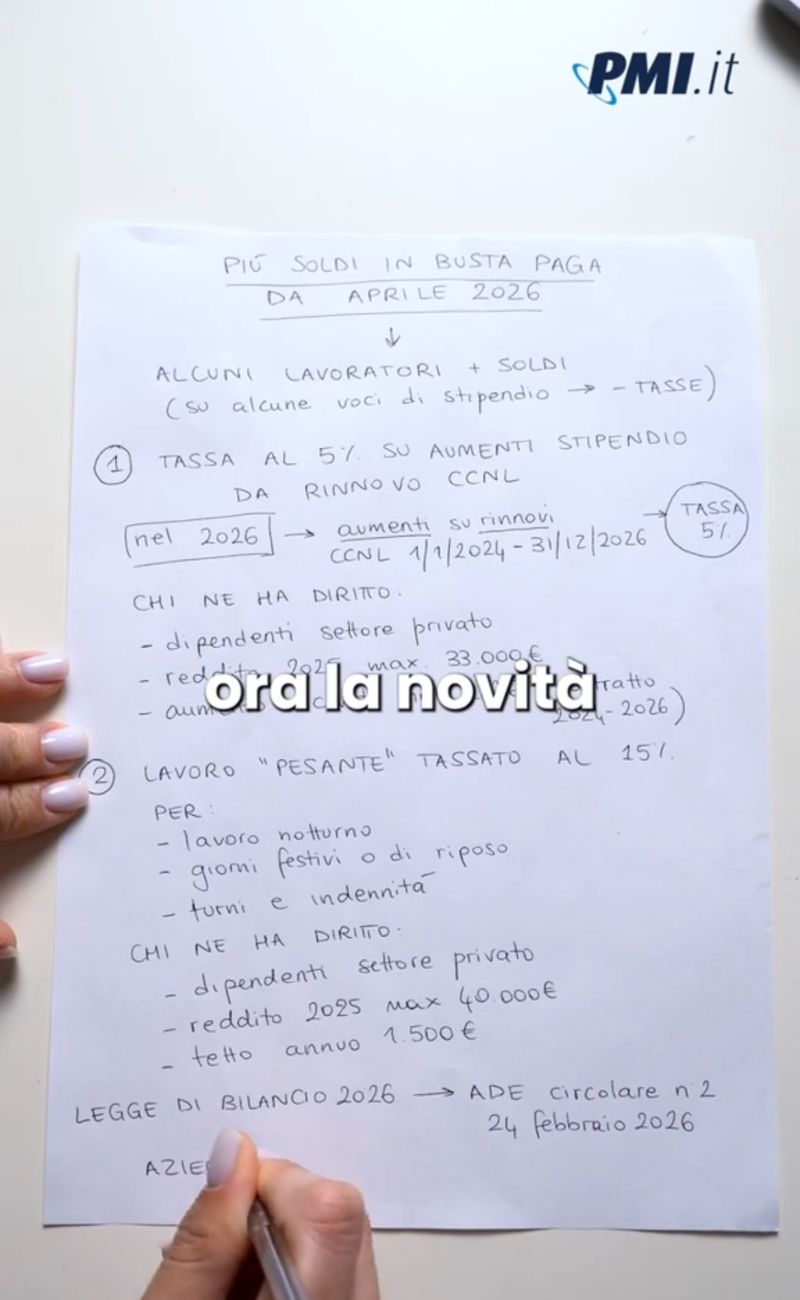 PMI.it
PIÚ SOLDI IN BUSTA PAGA
DA APRILE 2026
↓
ALCUNI LAVORATORI + SOLDI
(su alcune voci di stipendio → - TASSE)
1 TASSA AL 5% SU AUMENTI STIPENDIO
DA RINNOVO CCNL
nel 2026 → aumenti su rinnovi → TASSA
CCNL 1/1/2024 - 31/12/2026 5%
CHI NE HA DIRITTO:
- dipendenti settore privato
- reddito 2025 max. 33.000€
ora la novità
2024-2026)
2 LAVORO "PESANTE" TASSATO AL 15%.
PER:
- lavoro notturno
- giorni festivi o di riposo
- turni e indennità
CHI NE HA DIRITTO:
- dipendenti settore privato
- reddito 2025 max 40.000€
- tetto annuo 1.500€
LEGGE DI BILANCIO 2026 → ADE circolare n 2
24 febbraio 2026
AZIE